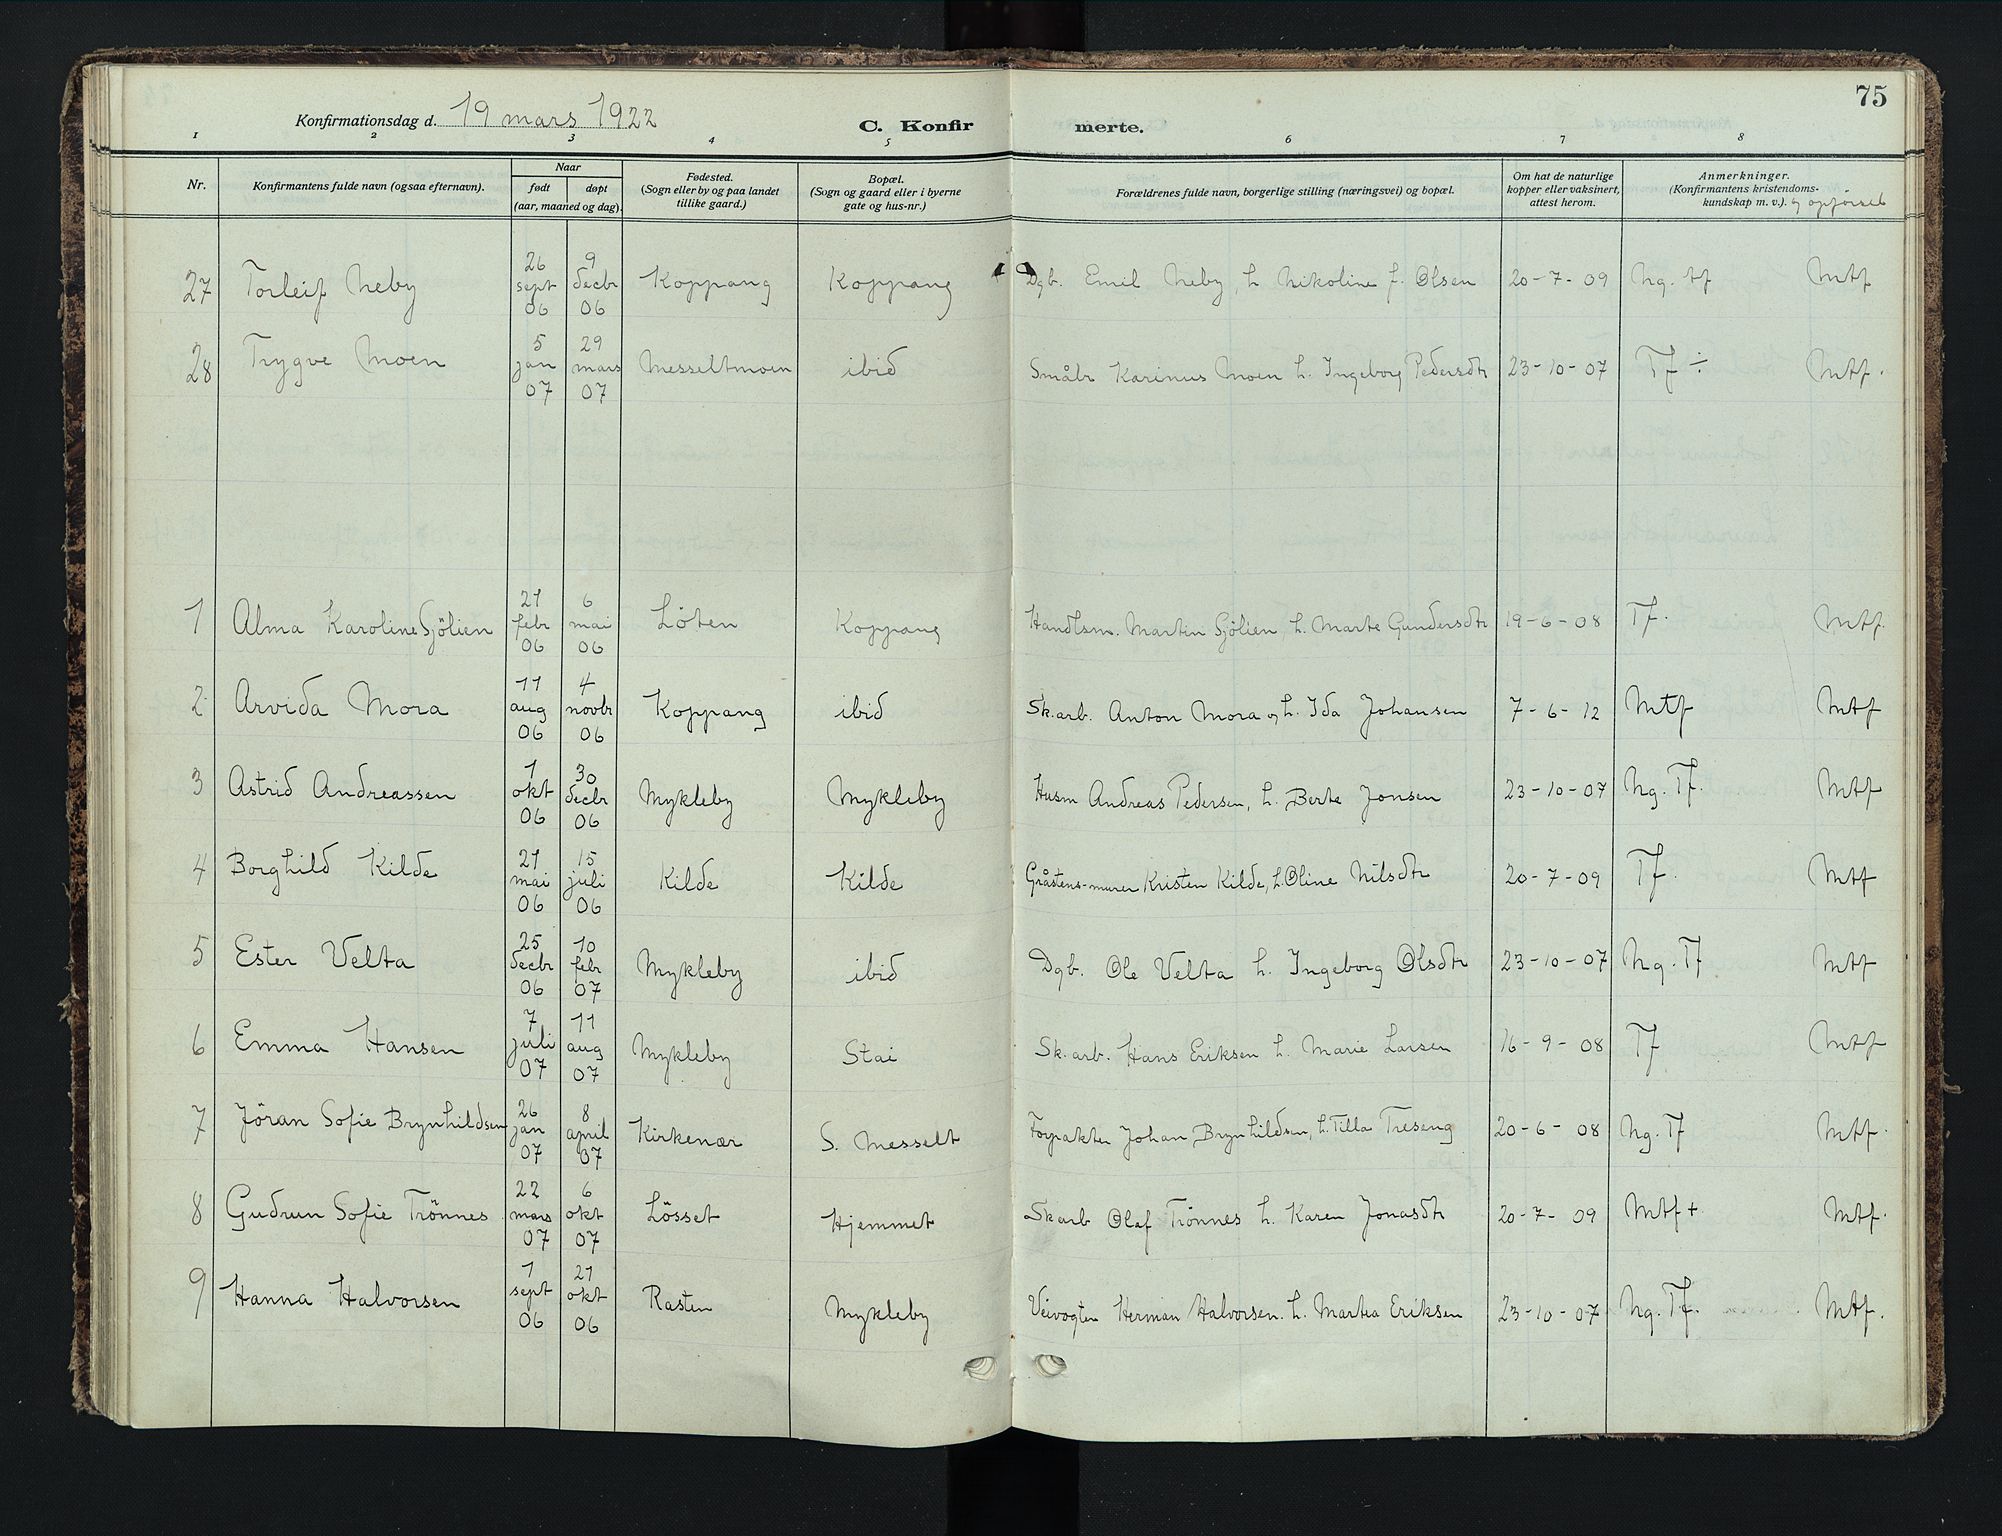 75
Konfirmationsdag d. 19 mars 1922 C. Konfir merte.
1 2 3 4 5 6 7 8
Nr. Konfirmantens fulde navn (ogsaa efternavn). Naar født døpt (aar, maaned og dag). Fødested. (Sogn eller by og paa landet tillike gaard.) Bopæl. (Sogn og gaard eller i byerne gate og hus-nr.) Forældrenes fulde navn, borgerlige stilling (næringsvei) og bopæl. Om hat de naturlige kopper eller vaksinert, attest herom. Anmerkninger. (Konfirmantens kristendoms-kundskap m. v.). og opførsel
27 Torleif Neby 26 sept 06 9 decbr 06 Koppang Koppang Dgb. Emil Neby, h. Nikoline f. Olsen 20-7-09 Ng. tf Mtf
28 Trygve Moen 5 jan 07 29 mars 07 Messeltmoen ibid Småbr Karinus Moen h. Ingeborg Pedersdtr 23-10-07 Tf ÷ Mtf.
1 Alma Karoline Sjölien 21 febr 06 6 mai 06 Löten Koppang Handlsm. Martin Sjölien, h. Marte Gundersdtr 19-6-08 Tf. Mtf.
2 Arvida Mora 11 aug 06 4 novbr 06 Koppang ibid Sk.arb. Anton Mora og h. Ida Johansen 7-6-12 Mtf Mtf
3 Astrid Andreassen 1 okt 06 30 decbr 06 Mykleby Mykleby Husm Andreas Pedersen, h. Berte Jonsen 23-10-07 Ng. Tf. Mtf
4 Borghild Kilde 21 mai 06 15 juli 06 Kilde Kilde Gråstens-murer Kristen Kilde, h. Oline Nilsdtr 20-7-09 Tf. Mtf
5 Ester Velta 25 decbr 06 10 febr 07 Mykleby ibid Dgb. Ole Velta h. Ingeborg Olsdtr 23-10-07 Ng. Tf Mtf
6 Emma Hansen 7 juli 07 11 aug 07 Mykleby Stai Sk.arb. Hans Eriksen h. Marie Larsen 16-9-08 Tf Mtf
7 Jöran Sofie Brynhildsen 26 jan 07 8 april 07 Kirkenær S. Messelt Forpakter Johan Brynhildsen, h. Tilla Treseng 20-6-08 Ng. Tf Mtf.
8 Gudrun Sofie Trönnes 22 mars 07 6 okt 07 Lösset Hjemmet Skarb Olaf Trönnes h. Karen Jonasdtr 20-7-09 Mtf + Mtf.
9 Hanna Halvorsen 1 sept 06 21 okt 06 Rasten Mykleby Veivogter Herman Halvorsen. h. Martea Eriksen 23-10-07 Ng. Tf. Mtf.